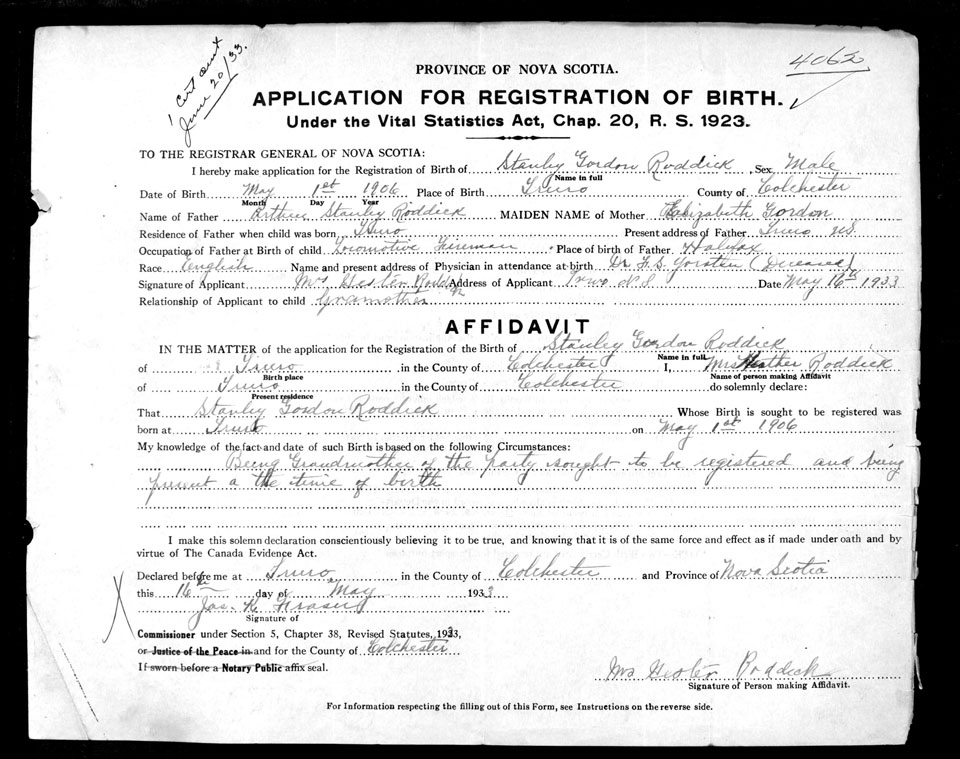 1 Cert sent
June 20/33.
4062
PROVINCE OF NOVA SCOTIA.
APPLICATION FOR REGISTRATION OF BIRTH.
Under the Vital Statistics Act, Chap. 20, R. S. 1923.
TO THE REGISTRAR GENERAL OF NOVA SCOTIA:
I hereby make application for the Registration of Birth of Stanley Gordon Roddick, Sex Male
Name in full
Date of Birth May 1st 1906 Place of Birth Truro County of Colchester
Month Day Year
Name of Father Arthur Stanley Roddick MAIDEN NAME of Mother Elizabeth Gordon
Residence of Father when child was born Truro Present address of Father Truro NS
Occupation of Father at Birth of child Locomotive Fireman Place of birth of Father Halifax
Race English Name and present address of Physician in attendance at birth Dr F. S. Yorston (Deceased)
Signature of Applicant Mrs Hester Roddick Address of Applicant Truro N S Date May 16th 1933
Relationship of Applicant to child Gramother
AFFIDAVIT
IN THE MATTER of the application for the Registration of the Birth of Stanley Gordon Roddick
Name in full
of Truro in the County of Colchester I, Mrs Hesther Roddick
Birth place Name of person making Affidavit
of Truro in the County of Colchester do solemnly declare:
Present residence
That Stanley Gordon Roddick Whose Birth is sought to be registered was
born at Truro on May 1st 1906
My knowledge of the fact and date of such Birth is based on the following Circumstances:
Being Grandmother of the party sought to be registered and being
present a the time of birth
I make this solemn declaration conscientiously believing it to be true, and knowing that it is of the same force and effect as if made under oath and by
virtue of The Canada Evidence Act.
Declared before me at Truro in the County of Colchester and Province of Nova Scotia
this 16th day of May 1933
Jas. K Fraser
Signature of
Commissioner under Section 5, Chapter 38, Revised Statutes, 1923,
or Justice of the Peace in and for the County of Colchester
If sworn before a Notary Public affix seal.
Mrs Hester Roddick
Signature of Person making Affidavit.
For Information respecting the filling out of this Form, see Instructions on the reverse side.